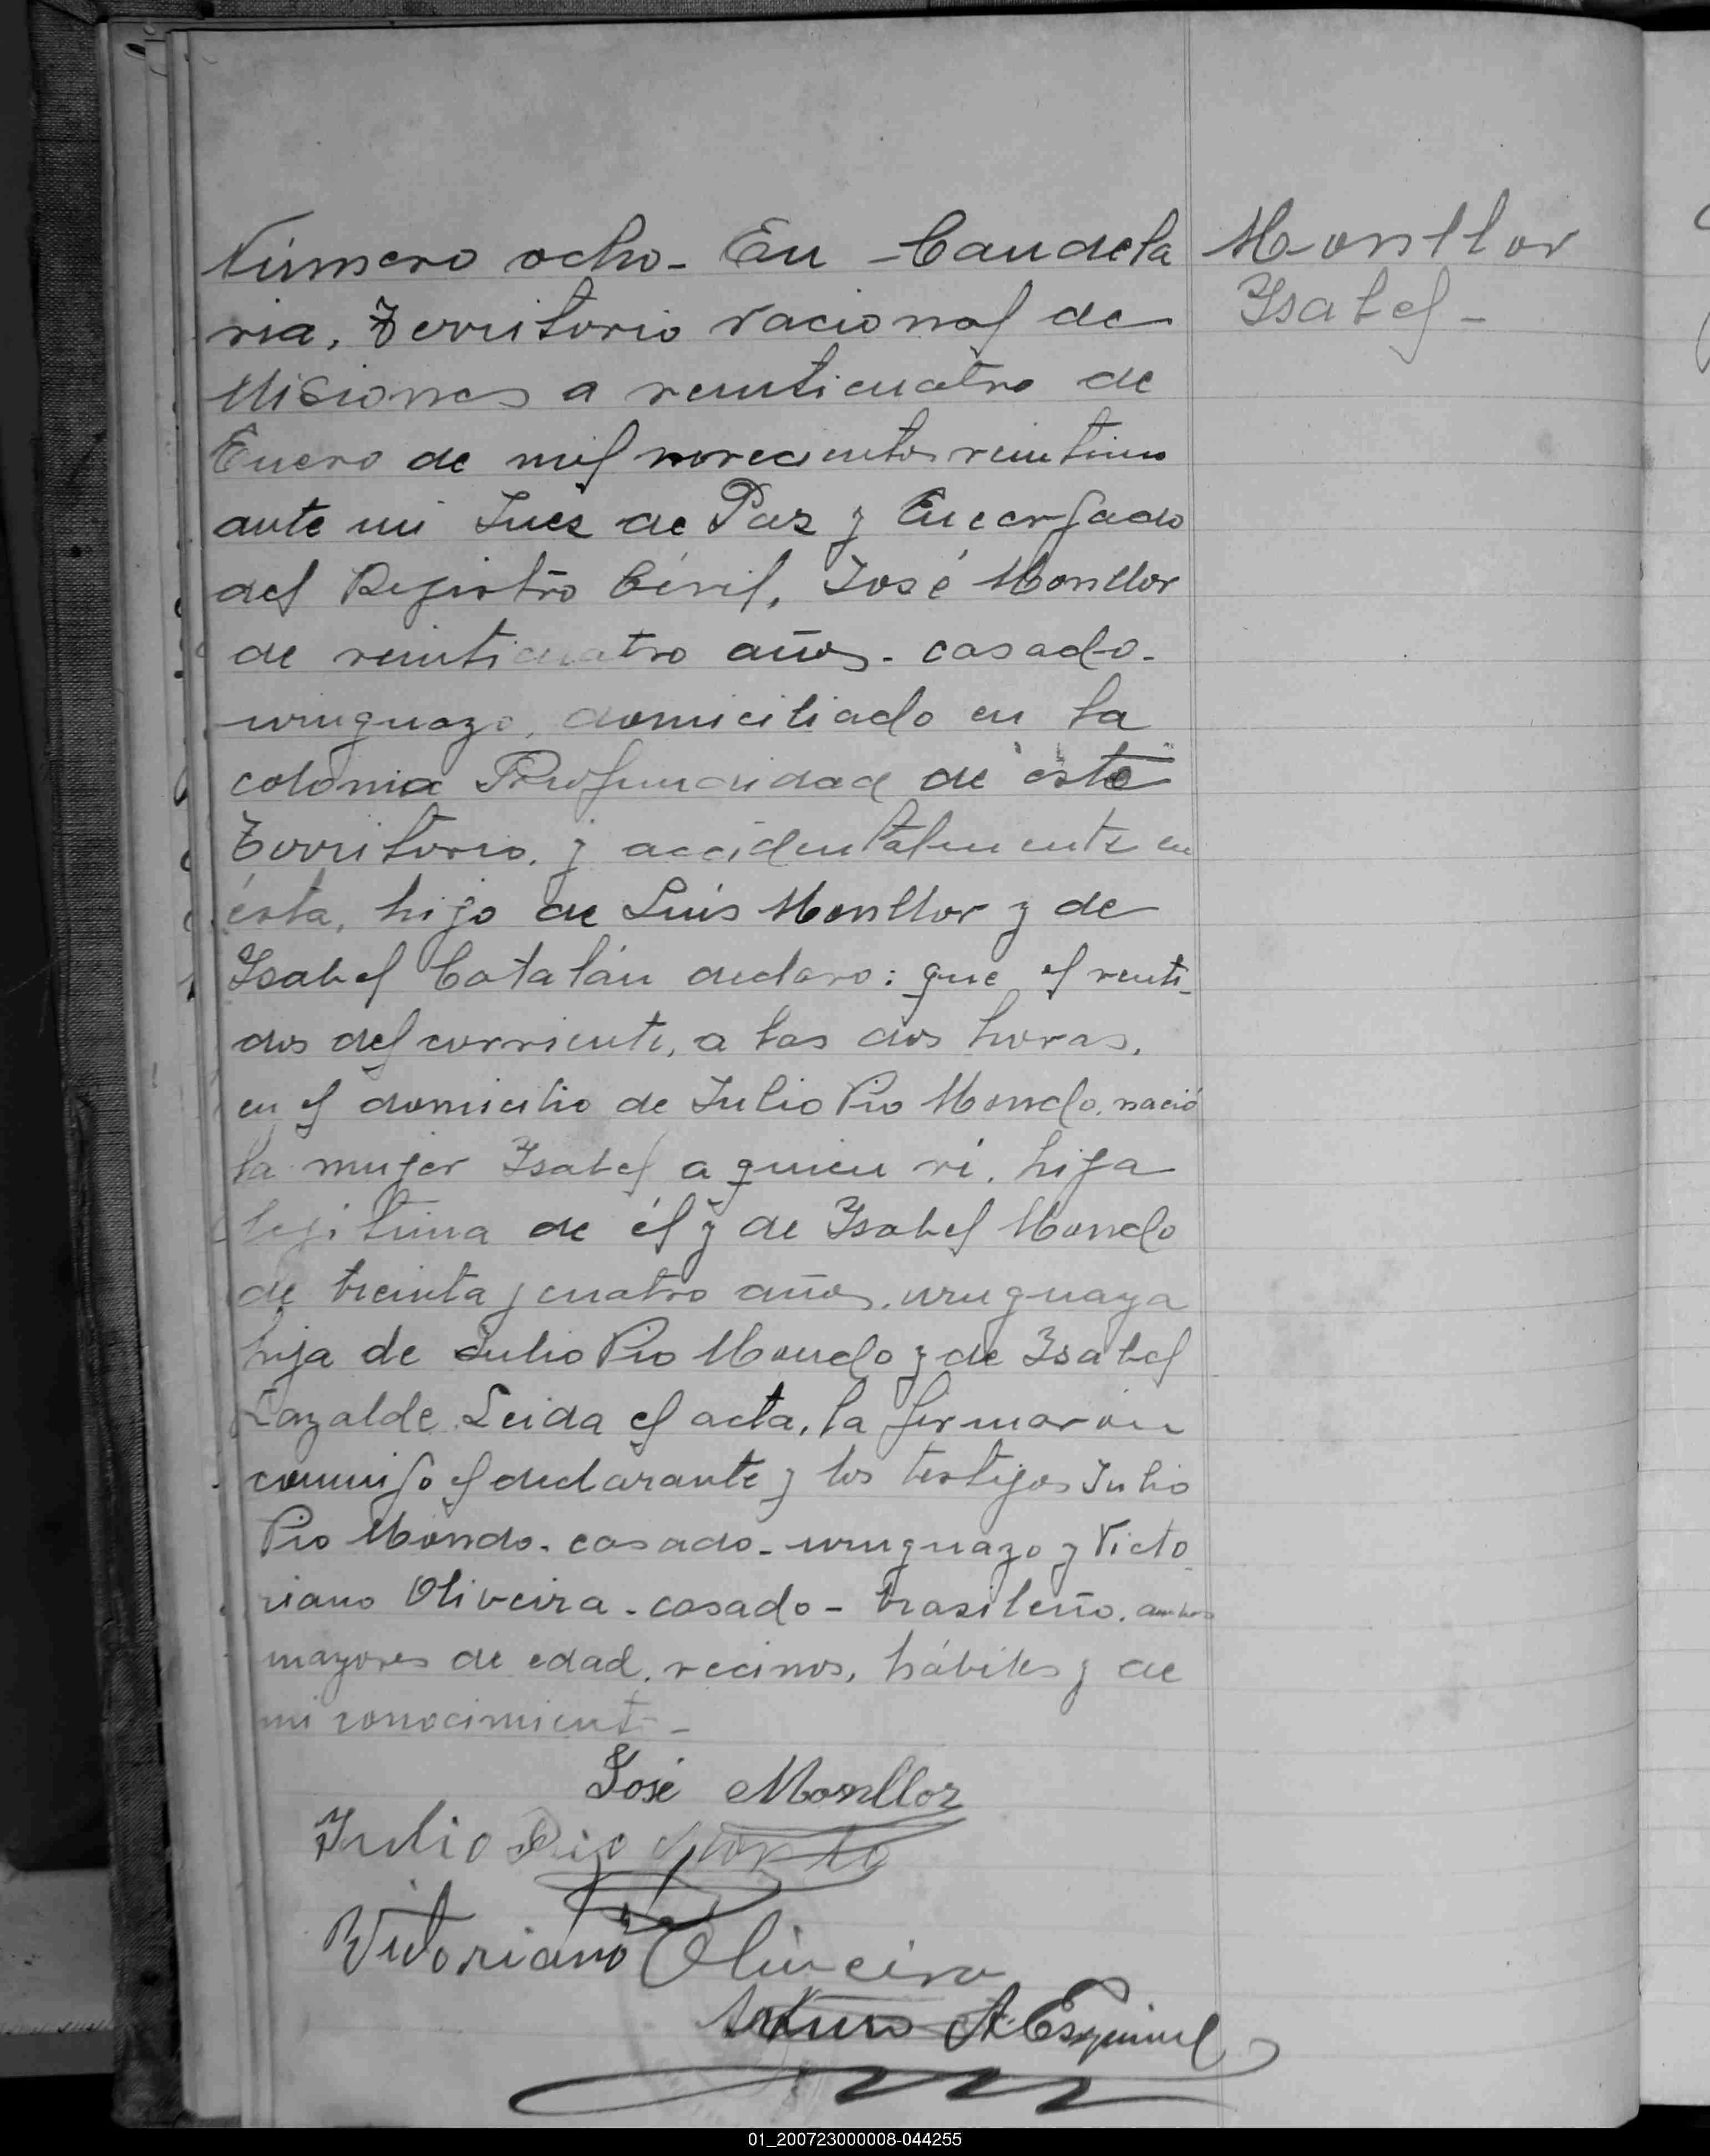 Número ocho - En Candela
ria, Territorio Nacional de
Misiones a veinticuatro de
Enero de mil novecientos veintiuno
ante mi Juez de Paz y Encargado
del Registro Civil, José Monllor
de veinticuatro años - casado -
uruguayo, domiciliado en la
colonia Profundidad de este
Territorio, y accidentalmente en
ésta, hijo de Luis Monllor y de
Isabel Catalán declaro: que el veinti-
dos del corriente, a las dos horas,
en el domicilio de Julio Pio Mondo, nació
la mujer Isabel a quien vi, hija
legitima de él y de Isabel Mondo
de treinta y cuatro años, uruguaya
hija de Julio Pio Mondo y de Isabel
Leida el acta, la firmaron
conmigo el declarante y los testigos Julio
Pio Mondo - casado - uruguayo y Victo
riano Oliveira - casado - brasileño, ambos
mayores de edad, vecinos, hábiles y de
mi conocimiento -
Monllor
Isabel -
José Monllor
Julio Pio Mondo
Vitoriano Oliveira
Arturo A. Esquivel
01_200723000008-044255